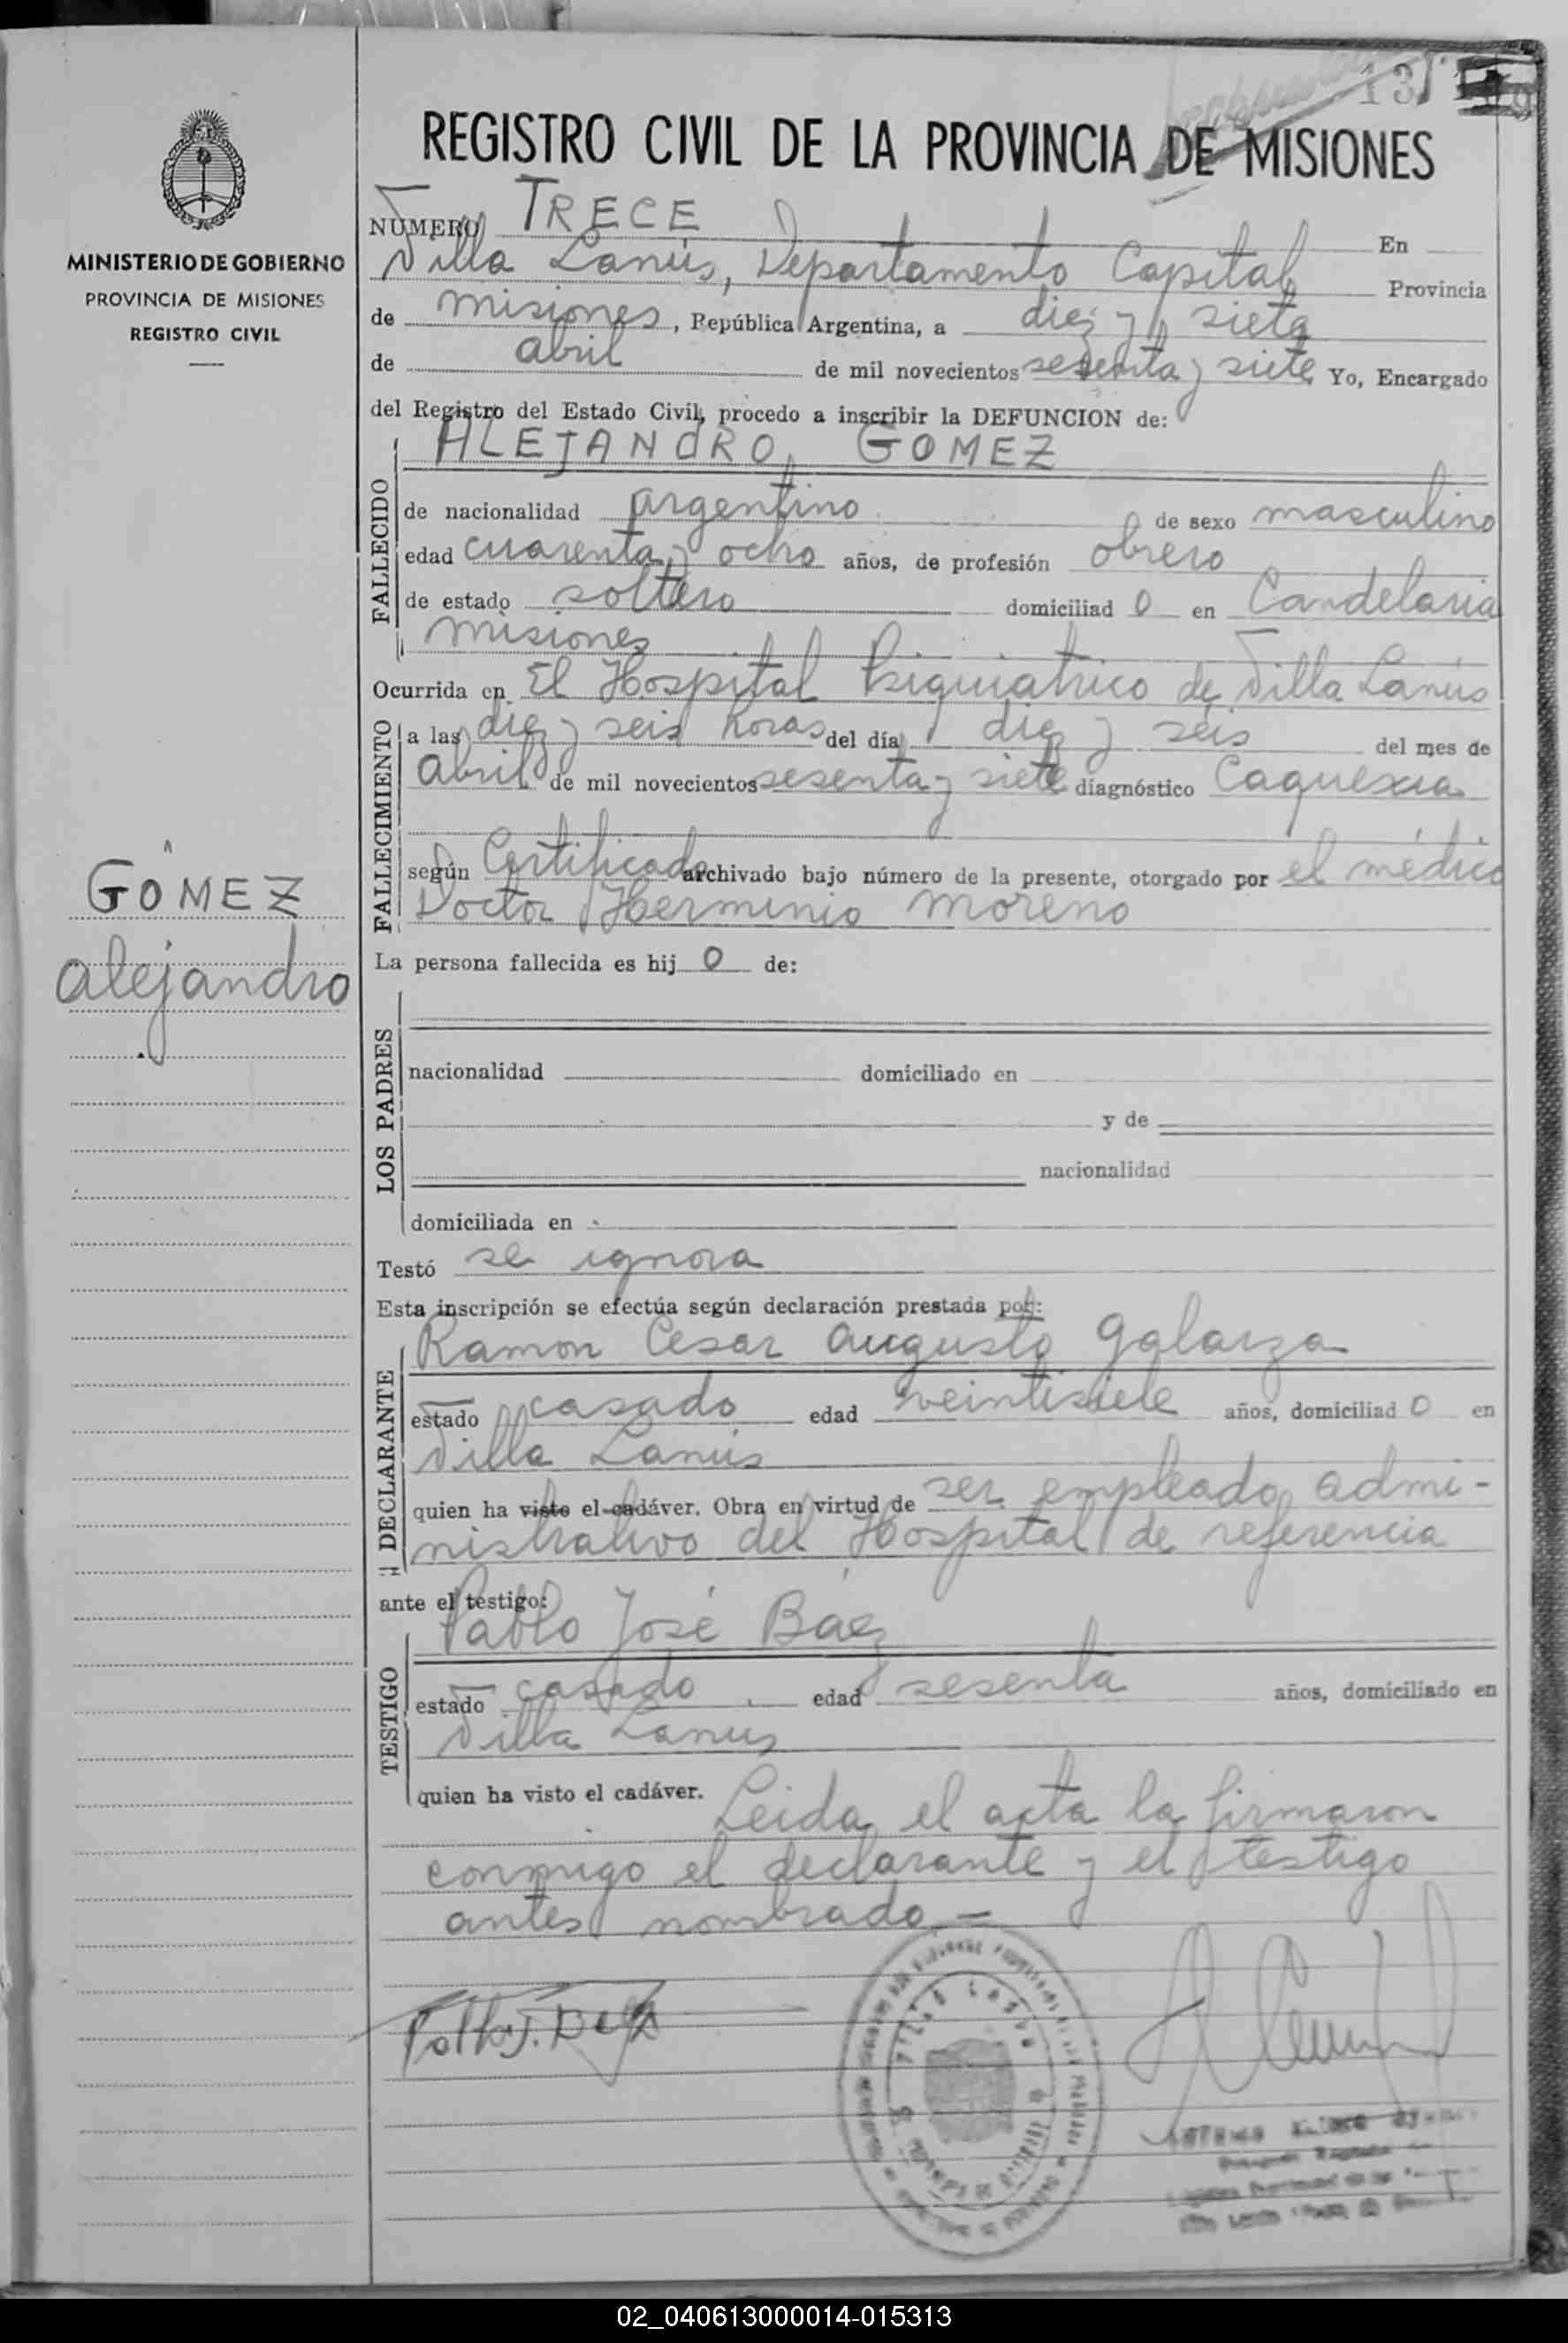 13
REGISTRO CIVIL DE LA PROVINCIA DE MISIONES
MINISTERIO DE GOBIERNO
PROVINCIA DE MISIONES
REGISTRO CIVIL
NUMERO TRECE En
Villa Lanús, Departamento Capital Provincia
de misiones, República Argentina, a diez y siete
de abril de mil novecientos sesenta y siete Yo, Encargado
del Registro del Estado Civil, procedo a inscribir la DEFUNCION de:
FALLECIDO
ALEJANDRO GOMEZ
de nacionalidad argentino de sexo masculino
edad cuarenta y ocho años, de profesión obrero
de estado soltero domiciliad o en Candelaria
misiones
Ocurrida en El Hospital Psiquiatrico de Villa Lanús
FALLECIMIENTO
a las diez y seis horas del día diez y seis del mes de
abril de mil novecientos sesenta y siete diagnóstico Caquexia
según Certificado archivado bajo número de la presente, otorgado por el médico
Doctor Herminio Moreno
GOMEZ
alejandro
La persona fallecida es hij o de:
LOS PADRES
nacionalidad domiciliado en
y de
nacionalidad
domiciliada en
Testó se ignora
Esta inscripción se efectúa según declaración prestada por:
DECLARANTE
Ramon Cesar Augusto Galarza
estado casado edad veintisiete años, domiciliad o en
Villa Lanús
quien ha visto el cadáver. Obra en virtud de ser empleado admi-
nistrativo del Hospital de referencia
ante el testigo:
TESTIGO
Pablo José Báez
estado casado edad sesenta años, domiciliado en
Villa Lanus
quien ha visto el cadáver. Leida el acta la firmaron
conmigo el declarante y el testigo
antes nombrado -
02_040613000014-015313